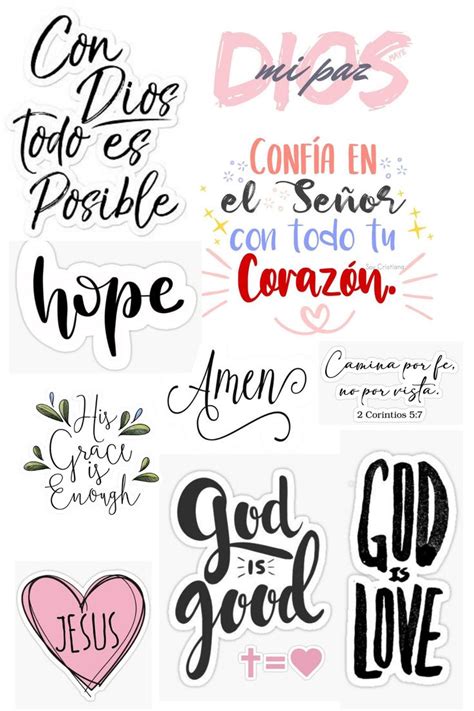 Con
Dios
todo es
Posible
DIOS
mi paz
CONFÍA EN
el Señor
con todo tu
Corazón.
Soy Cristiana
hope
Amen
Camina por fe,
no por vista.
2 Corintios 5:7
His
Grace
is
Enough
God
IS
good
†=♥
GOD
IS
LOVE
JESUS